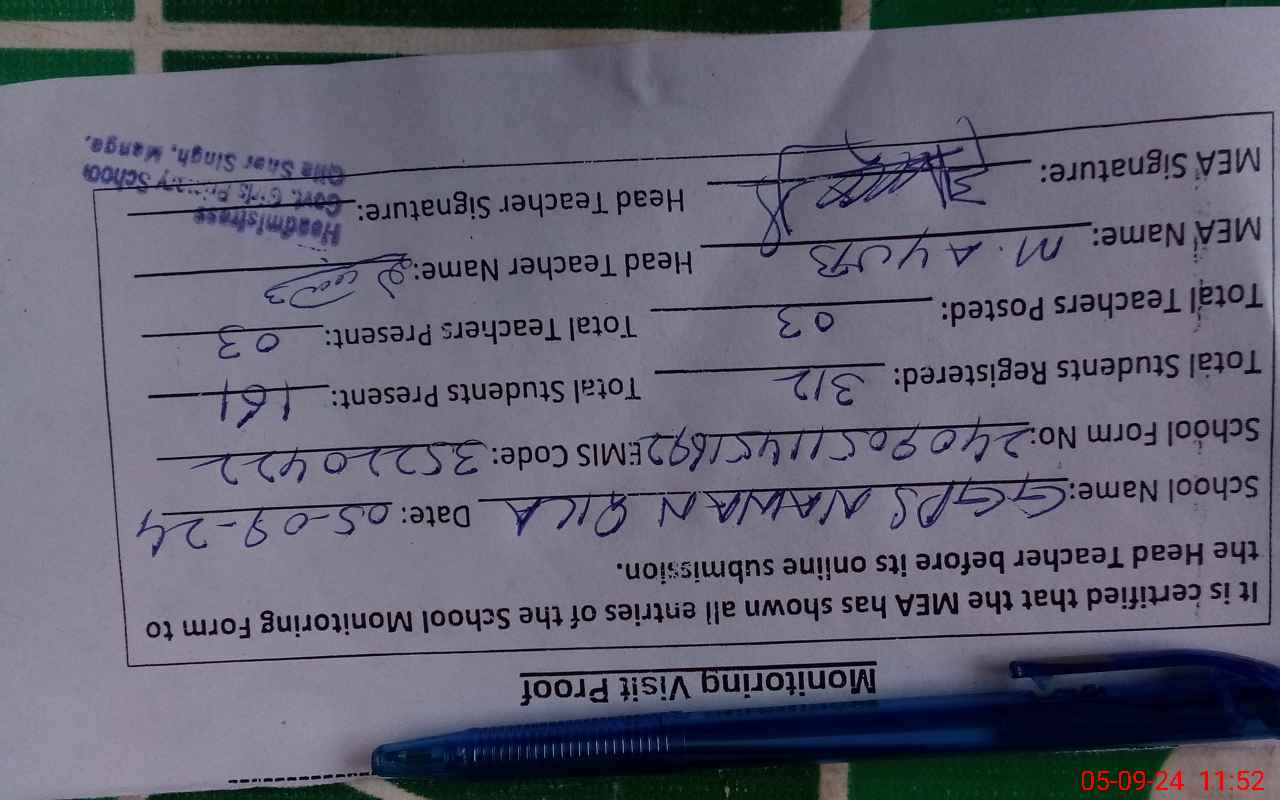 Monitoring Visit Proof
It is certified that the MEA has shown all entries of the School Monitoring Form to
the Head Teacher before its online submission.
School Name: GGPS NAWAN QILA Date: 05-09-24
School Form No: 24090511451692 EMIS Code: 35220422
Total Students Registered: 312 Total Students Present: 161
Total Teachers Posted: 03 Total Teachers Present: 03
MEA Name: M. AYUB Head Teacher Name:
MEA Signature: Head Teacher Signature:
Headmistress
Govt. Girls Primary School
Singh, Manga.
05-09-24 11:52